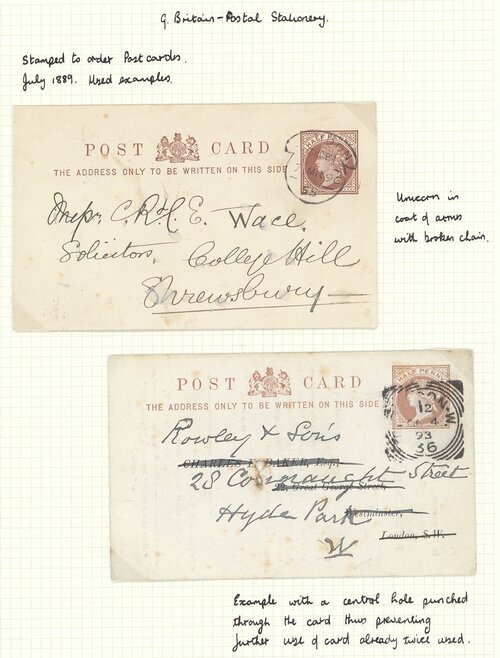 G. Britain - Postal Stationery.
Stamped to order Postcards.
July 1889. Used examples.
POST CARD
THE ADDRESS ONLY TO BE WRITTEN ON THIS SIDE
HALF PENNY
Messrs C. R. & C. E. Wace.
Solicitors.
College Hill
Shrewsbury
Unicorn in
coat of arms
with broken chain.
POST CARD
THE ADDRESS ONLY TO BE WRITTEN ON THIS SIDE
HALF PENNY
12
93
36
Rowley & Sons
CHARLES BAKER, Esq.,
28 Connaught Street
Great George Street,
Hyde Park
Westminster,
W
London, S.W.
Example with a central hole punched
through the card thus preventing
further use of card already twice used.